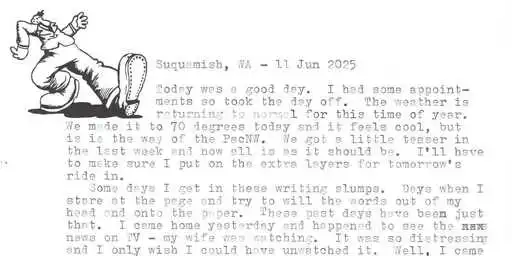 Suquamish, WA - 11 Jun 2025
Today was a good day. I had some appoint-
ments so took the day off. The weather is
returning to normal for this time of year.
We made it to 70 degrees today and it feels cool, but
is is the way of the PacNW. We got a little teaser in
the last week and now all is as it should be. I'll have
to make sure I put on the extra layers for tomorrow's
ride in.
Some days I get in these writing slumps. Days when I
stare at the page and try to will the words out of my
head and onto the paper. These past days have been just
that. I came home yesterday and happened to see the
news on TV - my wife was watching. It was so distressing
and I only wish I could have unwatched it. Well, I came